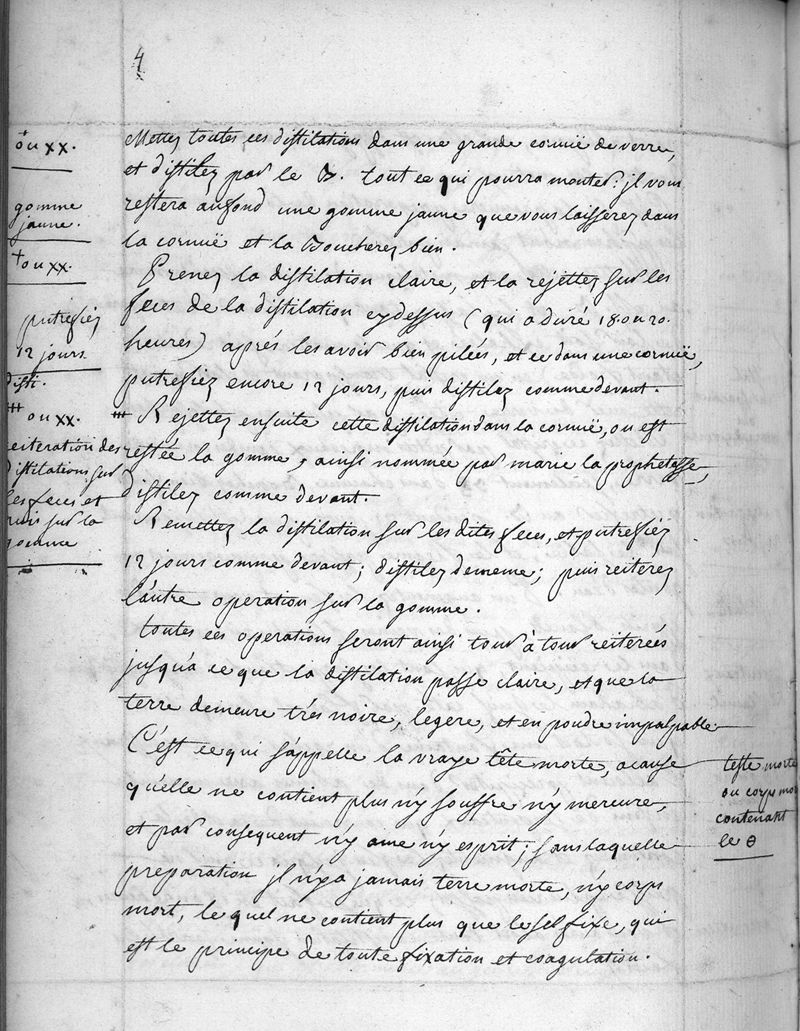 4
Mettez toutes ces distilations dans une grande cornuë de verre,
et distilez par le B. tout ce qui pourra monter: jl vous
restera au fond une gomme jaune que vous laisserez dans
la cornuë et la boucherez bien.
Prenez la distilation claire, et la rejettez sur les
feces de la distilation cy dessus (qui a duré 18 ou 20
heures) aprés les avoir bien pilées, et ce dans une cornuë,
putrefiez encore 12 jours, puis distilez comme devant.
Rejettez ensuite cette distilation dans la cornuë, ou est
restée la gomme, ainsi nommée par marie la prophetesse,
distilez comme devant.
Remettez la distilation sur les dites feces, et putrefiez
12 jours comme devant; distilez de meme; puis reiterez
l'autre operation sur la gomme.
toutes ces operations seront ainsi tour à tour reiterées
jusqu'a ce que la distilation passe claire, et que la
terre demeure trés noire, legere, et en poudre impalpable
C'est ce qui s'appelle la vraye tête morte, a cause
qu'elle ne contient plus n'y souffre n'y mercure,
et par consequent n'y ame n'y esprit; sans laquelle
preparation jl n'y a jamais terre morte, n'y corps
mort, le quel ne contient plus que le sel fixe, qui
est le principe de toute fixation et coagulation.
ou xx.
gomme
jaune.
+ ou xx.
putrefiez
12 jours
disti.
ou xx.
reiteration des
distilations sur
les feces et
puis sur la
gomme
teste morte
ou corps mor
contenant
le θ